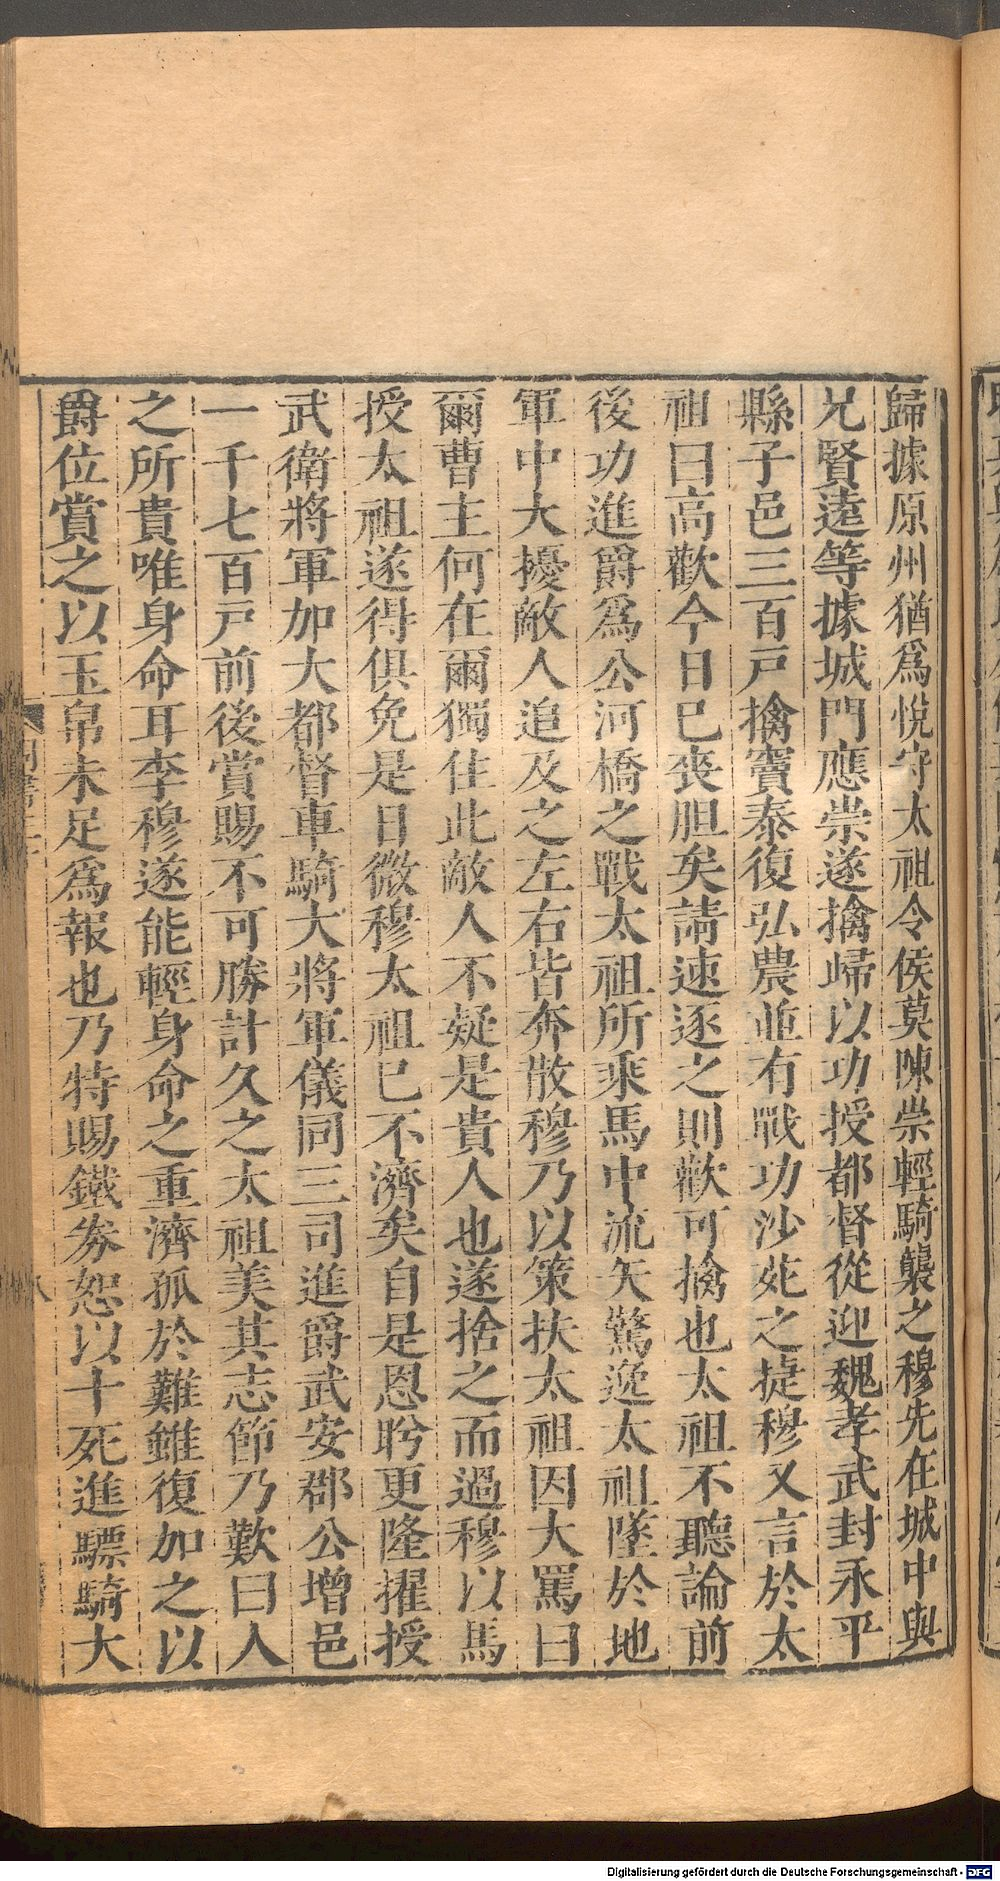 歸據原州猶爲悅守太祖令侯莫陳崇輕騎襲之穆先在城中與
兄賢遠等據城門應崇遂擒歸以功授都督從迎魏孝武封永平
縣子邑三百戸擒竇泰復弘農並有戰功沙苑之捷穆又言於太
祖曰高歡今日已喪胆矣請速逐之則歡可擒也太祖不聽論前
後功進爵爲公河橋之戰太祖所乘馬中流矢驚逸太祖墜於地
軍中大擾敵人追及之左右皆奔散穆乃以策扶太祖因大罵曰
爾曹主何在爾獨住此敵人不疑是貴人也遂捨之而過穆以馬
授太祖遂得俱免是日微穆太祖已不濟矣自是恩盻更隆擢授
武衛將軍加大都督車騎大將軍儀同三司進爵武安郡公增邑
一千七百戸前後賞賜不可勝計久之太祖美其志節乃歎曰人
之所貴唯身命耳李穆遂能輕身命之重濟孤於難雖復加之以
爵位賞之以玉帛未足爲報也乃特賜鐵劵恕以十死進驃騎大
Digitalisierung gefördert durch die Deutsche Forschungsgemeinschaft - DFG